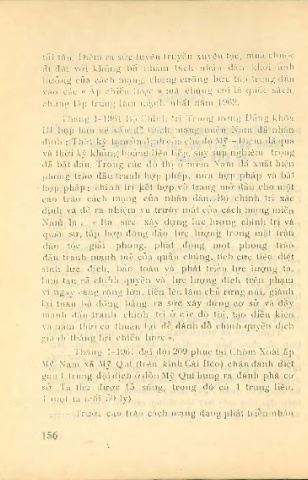 tối tân. Điểm ra sức tuyên truyền xuyên tạc, mua chuộc
đi đôi với khủng bố nhằm tách nhân dân khỏi ảnh
hưởng của cách mạng, chúng cưỡng bức tập trung dân
vào các « Ấp chiến lược » mà chúng coi là quốc sách,
chúng tập trung làm mạnh nhất năm 1962.
Tháng 1-1961 Bộ Chính trị Trung ương Đảng khóa
III họp bàn về cách mạng miền Nam đã nhận
định : Thời kỳ tạm ổn định của chế độ Mỹ - Diệm đã qua
và thời kỳ khủng hoảng liên tiếp, suy sụp nghiêm trọng
đã bắt đầu. Trong các đô thị ở miền Nam đã xuất hiện
phong trào đấu tranh hợp pháp, nửa hợp pháp và bất
hợp pháp; chính trị kết hợp vũ trang mở đầu cho một
cao trào cách mạng của nhân dân. Bộ chính trị xác
định và đề ra nhiệm vụ trước mắt của cách mạng miền
Nam là : « Ra sức xây dựng lực lượng chính trị và
quân sự, tập hợp đông đảo lực lượng trong mặt trận
dân tộc giải phóng, phát động một phong trào
đấu tranh mạnh mẽ của quần chúng, tích cực tiêu diệt
sinh lực địch, bảo toàn và phát triển lực lượng ta,
làm tan rã chính quyền và lực lượng địch trên phạm
vi ngày càng rộng lớn, tiến lên làm chủ rừng núi, giành
lại toàn bộ đồng bằng, ra sức xây dựng cơ sở và đẩy
mạnh đấu tranh chính trị ở các đô thị, tạo điều kiện
và nắm thời cơ thuận lợi để đánh đổ chính quyền địch
giành thắng lợi chiến lược ».
Tháng 1-1961 đại đội 209 phục tại Chòm Xoài ấp
Mỹ Nam xã Mỹ Quí (trên kinh Cái Bèo) chặn đánh diệt
gọn 1 trung đội địch ở đồn Mỹ Quí bung ra đánh phá cơ
sở. Ta thu được 15 súng, trong đó có 1 trung liên,
1 một ta (cối 50 ly)
Trước cao trào cách mạng đang phát triển nhân
156